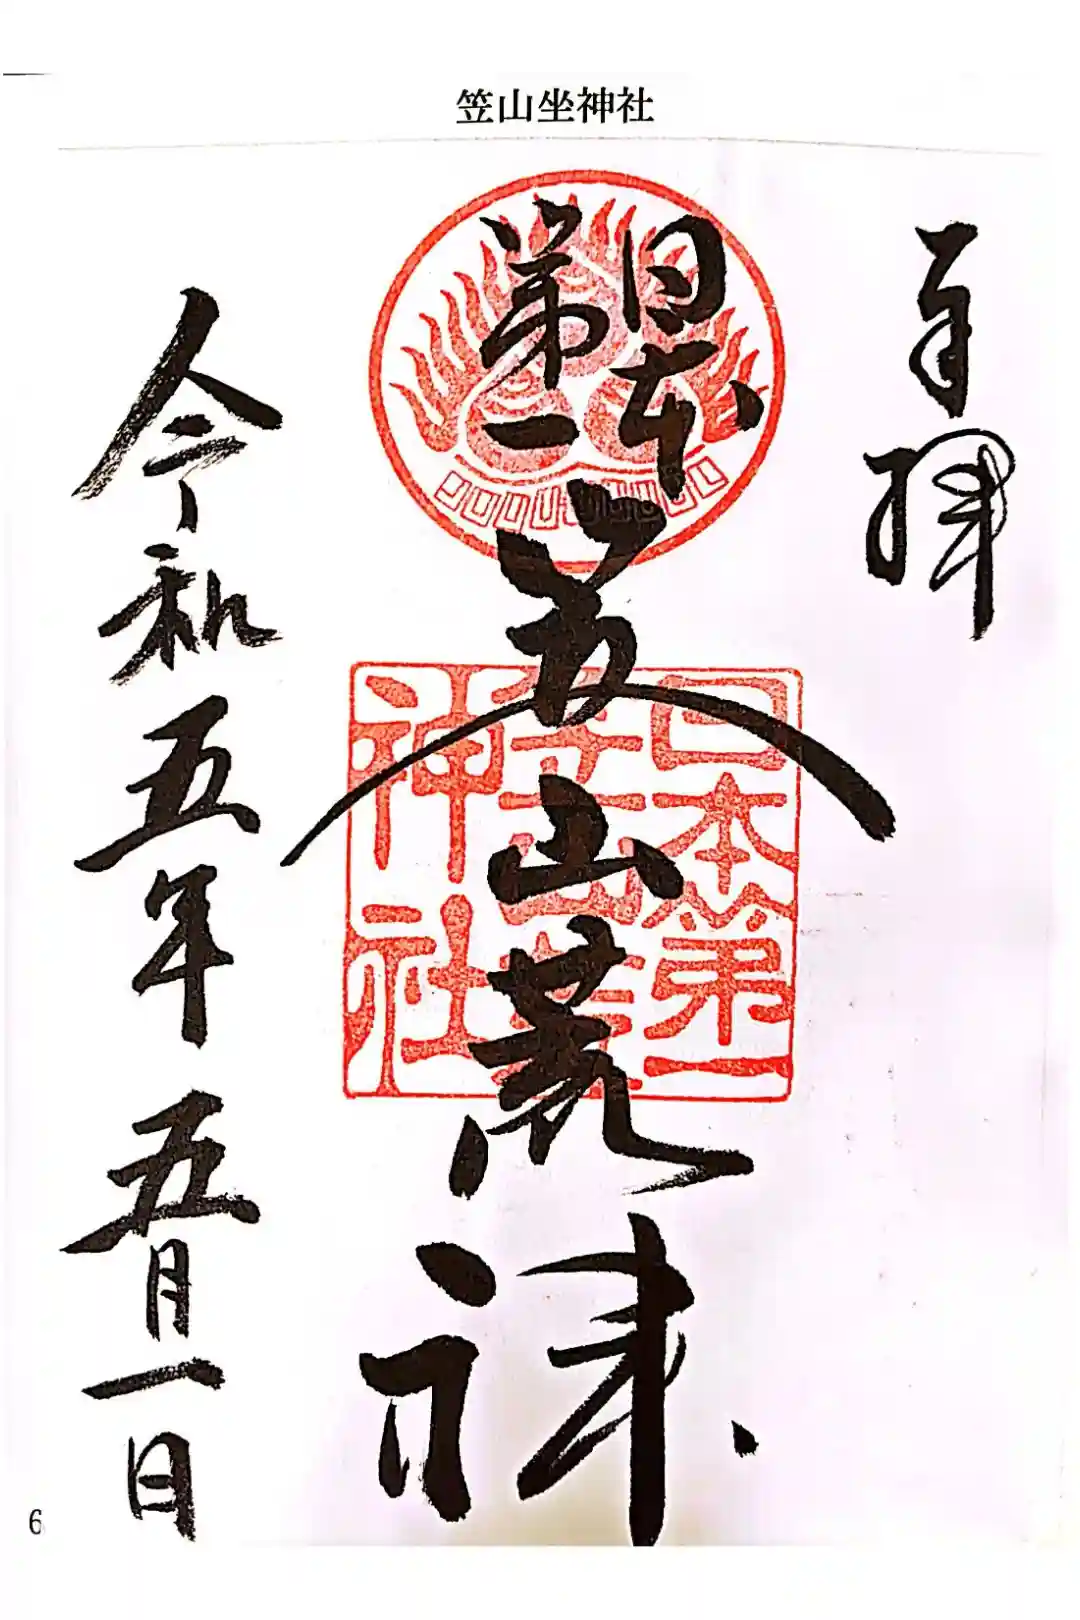 笠山坐神社
拝
日本
第一
笠山荒神
日本第一
笠山荒
神社
令和五年五月一日
6